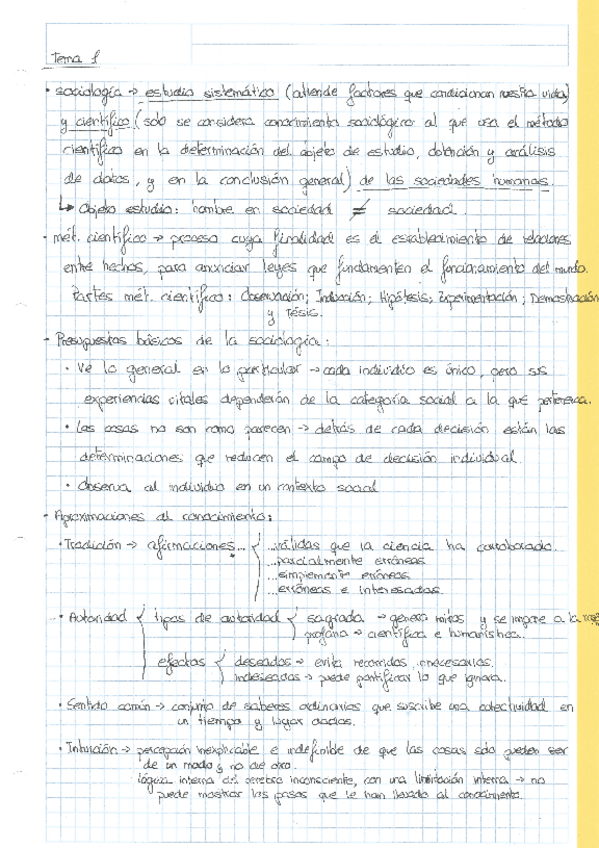 Tema 1
• sociología → estudio sistemático (atiende factores que condicionan nuestra vida)
y científico (solo se considera conocimiento sociológico al que usa el método
científico en la determinación del objeto de estudio, obtención y análisis
de datos, y en la conclusión general) de las sociedades humanas.
↳ Objeto estudio: hombre en sociedad ≠ sociedad.
• mét. científico → proceso cuya finalidad es el establecimiento de relaciones
entre hechos, para anunciar leyes que fundamenten el funcionamiento del mundo.
Partes mét. científico: Observación; Inducción; Hipótesis; Experimentación; Demostración
y Tésis.
- Presupuestos básicos de la sociología:
• Ve lo general en lo particular → cada individuo es único, pero sus
experiencias vitales dependerán de la categoría social a la que pertenezca.
• Las cosas no son como parecen → detrás de cada decisión están las
determinaciones que reducen el campo de decisión individual.
• Observa al individuo en un contexto social
- Aproximaciones al conocimiento:
• Tradición → afirmaciones... { ...válidas que la ciencia ha corroborado.
...parcialmente erróneas
...simplemente erróneas
...erróneas e interesadas.
• Autoridad { tipos de autoridad { sagrada → genera mitos y se impone a la
profana → científica e humanística.
efectos { deseados → evita recorridos innecesarios.
indeseados → puede pontificar lo que ignora.
• Sentido común → conjunto de saberes ordinarios que suscribe una colectividad en
un tiempo y lugar dados.
• Intuición → percepción inexplicable e indefinible de que las cosas solo pueden ser
de un modo y no de otro.
lógica interna del cerebro inconsciente, con una limitación interna → no
puede mostrar los pasos que le han llevado al conocimiento.